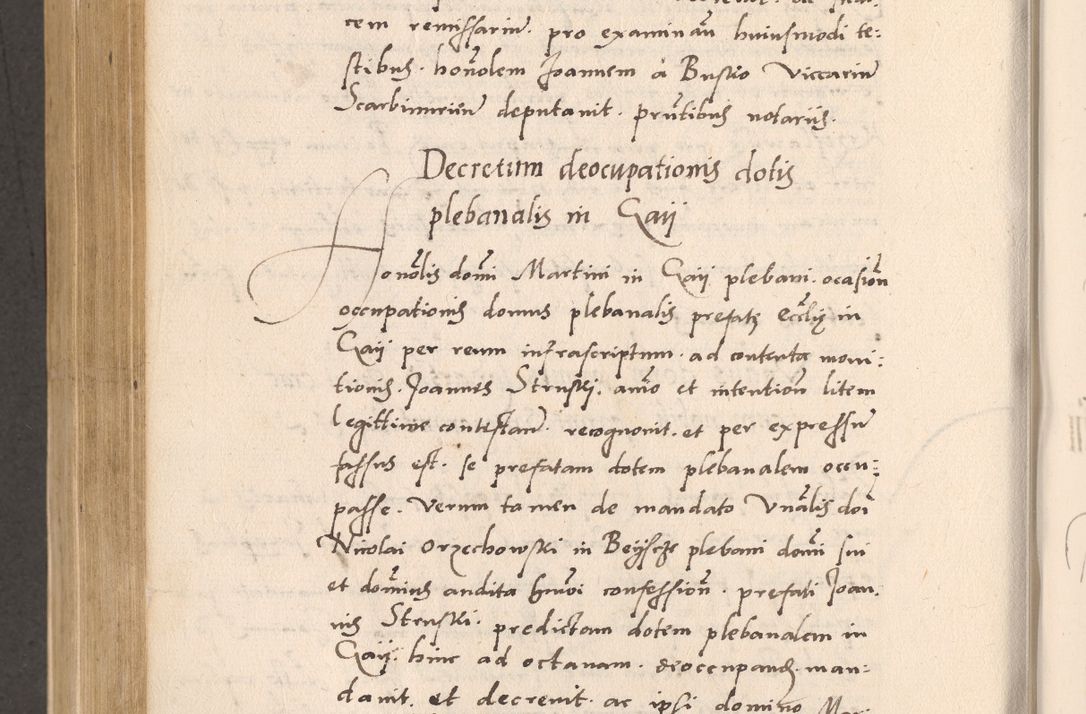 cem remissarium. pro examinan̄ huiusmodi te:
stibus. honōlem Joannem à Busko Viccarium
Scarbimirien̄ deputavit. prn̄tibus notariis.
Decretum deocupationis dotis
plebanalis in Gaii
Honōlis domī Martini in Gaii plebani. ocasion̄
occupationis domus plebanalis prefatę eccliȩ in
Gaii per reum infrascriptum. ad contenta moni:
tionis. Joannes Struski. animo et intention̄ litem
legittime contestan̄. recognovit. et per expressum
fassus est. se prefatam dotem plebanalem occu:
passe. Verum tamen de mandato Vn̄alis doī
Nicolai Orzechowski in Beysche plebani domī sui
et domīnus audita huiōi confession̄. prefati Joan:
nis Struski. predictam dotem plebanalem in
Gaii. hinc ad octavam. deoccupand. man:
davit. et decrevit. ac ipsi domino Mar: